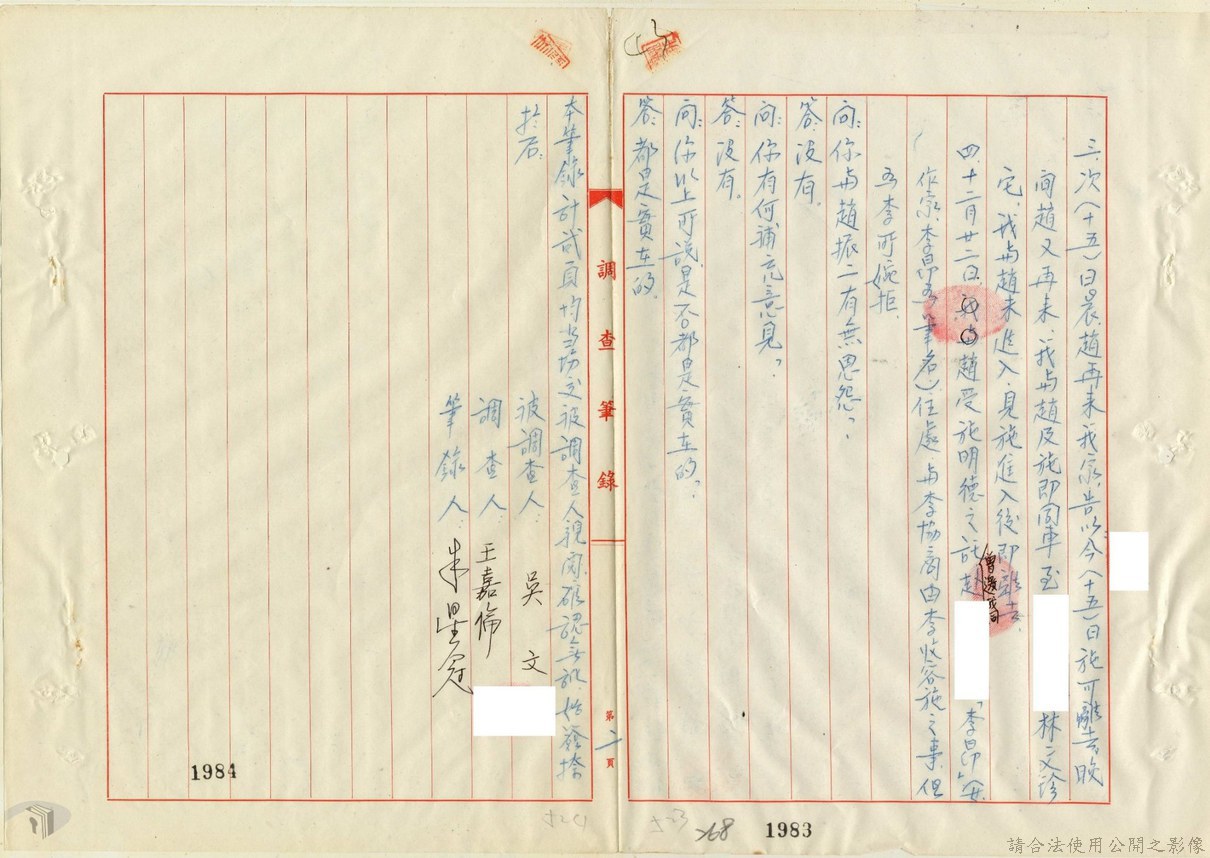 三、次(十五)日晨、趙再來我家、告以今(十五)日施可離去、晚
間趙又再來、我與趙及施即同車至 林文珍
宅、我與趙未進入、見施進入後即離去。
四、十二月廿二日、我與趙受施明德之託赴 「李昂」(女
曾邀我同
作家、李昂為筆名)住處、與李協商由李收容施之事、但
為李所婉拒。
問:你與趙振二有無恩怨?
答:沒有。
問:你有何補充意見?
答:沒有。
問:你以上所說是否都是實在的?
答:都是實在的。
調查筆錄
第二頁
本筆錄計貳頁均當場交被調查人親閱確認無訛、始簽捺
於后:
被調查人:吳文
調查人:王嘉倫
筆錄人:朱
1984
1983
268
請合法使用公開之影像